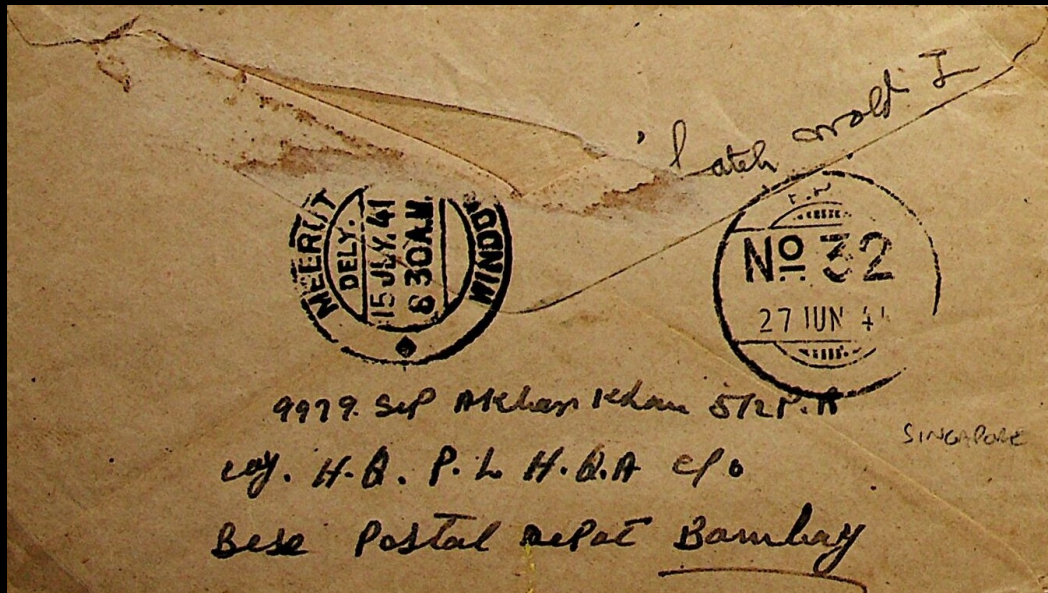 MEERUT
DELY.
15 JLY. 41
8 30 A.M.
WINDO
No 32
27 JUN 41
9979. Sep Akhan Khan 5/2 P.R
SINGAPORE
coy. H.Q. P.L H.Q.A c/o
Base Postal Depot Bombay